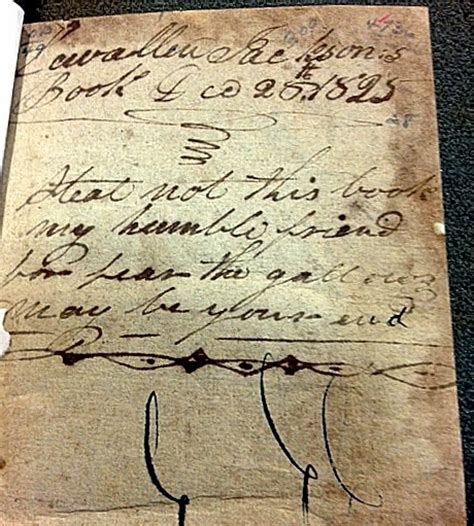 Lewallen Jackson,s
Book Dec 25th 1825
Steal not this book
my humble friend
for fear the gallows
may be your end